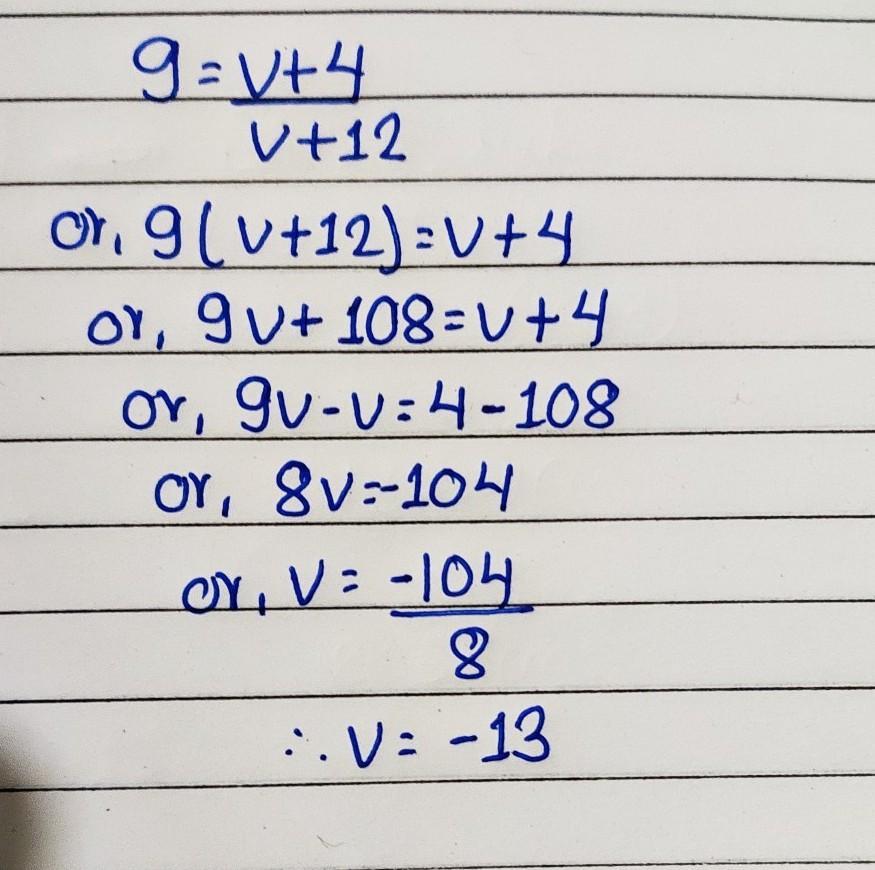 9 = v+4
v+12
or, 9(v+12)=v+4
or, 9v+108=v+4
or, 9v-v=4-108
or, 8v=-104
or, v= -104
8
∴ v= -13